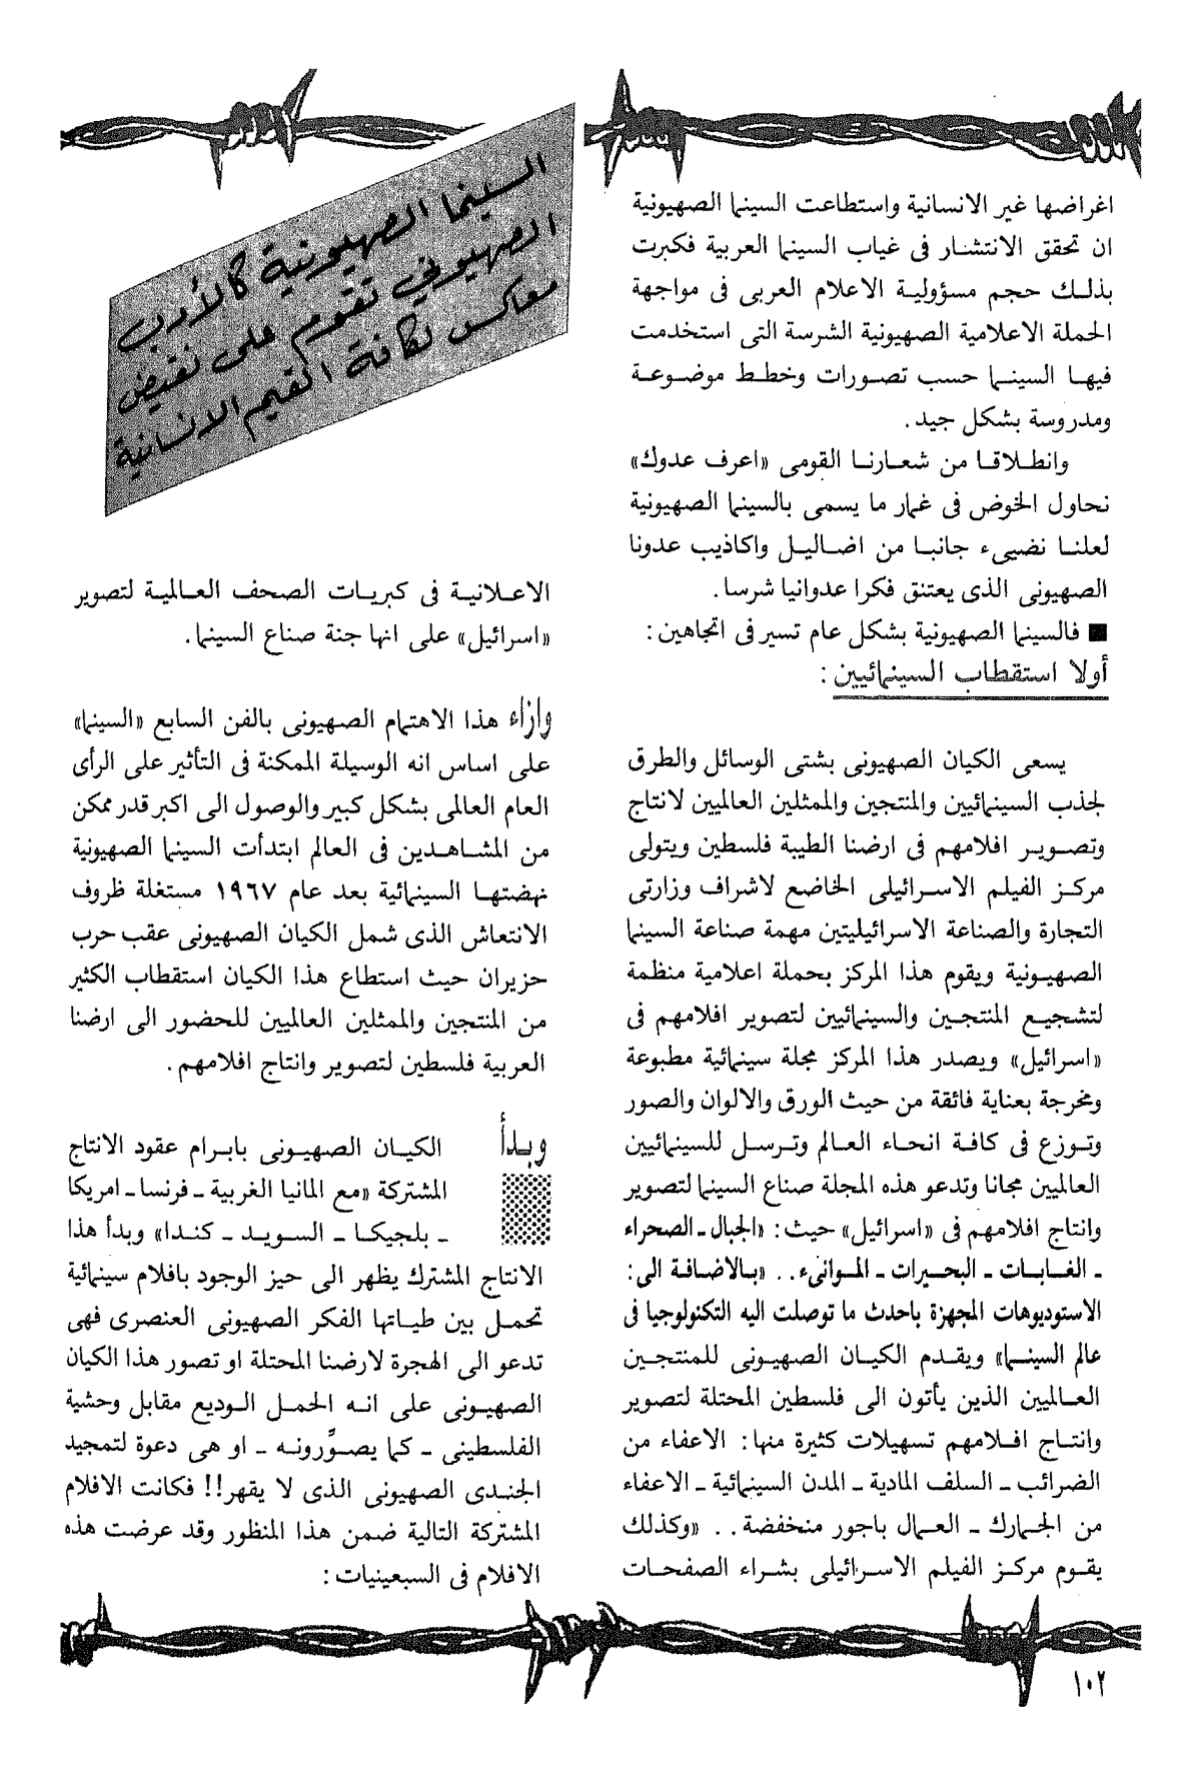 اغراضها غير الانسانية واستطاعت السينما الصهيونية
ان تحقق الانتشار فى غياب السينما العربية فكبرت
بذلك حجم مسؤولية الاعلام العربى فى مواجهة
الحملة الاعلامية الصهيونية الشرسة التى استخدمت
فيها السينما حسب تصورات وخطط موضوعة
ومدروسة بشكل جيد.
وانطلاقا من شعارنا القومى «اعرف عدوك»
نحاول الخوض فى غمار ما يسمى بالسينما الصهيونية
لعلنا نضيىء جانبا من اضاليل واكاذيب عدونا
الصهيونى الذى يعتنق فكرا عدوانيا شرسا.
■ فالسينما الصهيونية بشكل عام تسير فى اتجاهين:
أولا استقطاب السينمائيين:
يسعى الكيان الصهيونى بشتى الوسائل والطرق
لجذب السينمائيين والمنتجين والممثلين العالميين لانتاج
وتصوير افلامهم فى ارضنا الطيبة فلسطين ويتولى
مركز الفيلم الاسرائيلى الخاضع لاشراف وزارتى
التجارة والصناعة الاسرائيليتين مهمة صناعة السينما
الصهيونية ويقوم هذا المركز بحملة اعلامية منظمة
لتشجيع المنتجين والسينمائيين لتصوير افلامهم فى
«اسرائيل» ويصدر هذا المركز مجلة سينمائية مطبوعة
ومخرجة بعناية فائقة من حيث الورق والالوان والصور
وتوزع فى كافة انحاء العالم وترسل للسينمائيين
العالميين مجانا وتدعو هذه المجلة صناع السينما لتصوير
وانتاج افلامهم فى «اسرائيل» حيث: «الجبال ـ الصحراء
ـ الغابات ـ البحيرات ـ الموانىء.. «بالاضافة الى:
الاستوديوهات المجهزة باحدث ما توصلت اليه التكنولوجيا فى
عالم السينما» ويقدم الكيان الصهيونى للمنتجين
العالميين الذين يأتون الى فلسطين المحتلة لتصوير
وانتاج افلامهم تسهيلات كثيرة منها: الاعفاء من
الضرائب ـ السلف المادية ـ المدن السينمائية ـ الاعفاء
من الجمارك ـ العمال باجور منخفضة.. «وكذلك
يقوم مركز الفيلم الاسرائيلى بشراء الصفحات
السينما الصهيونية كالأدب
الصهيوني تقوم على نقيض
معاكس لكافة القيم الانسانية
الاعلانية فى كبريات الصحف العالمية لتصوير
«اسرائيل» على انها جنة صناع السينما.
وازاء هذا الاهتمام الصهيونى بالفن السابع «السينما»
على اساس انه الوسيلة الممكنة فى التأثير على الرأى
العام العالمى بشكل كبير والوصول الى اكبر قدر ممكن
من المشاهدين فى العالم ابتدأت السينما الصهيونية
نهضتها السينمائية بعد عام ١٩٦٧ مستغلة ظروف
الانتعاش الذى شمل الكيان الصهيونى عقب حرب
حزيران حيث استطاع هذا الكيان استقطاب الكثير
من المنتجين والممثلين العالميين للحضور الى ارضنا
العربية فلسطين لتصوير وانتاج افلامهم.
وبدأ الكيان الصهيونى بابرام عقود الانتاج
المشتركة «مع المانيا الغربية ـ فرنسا ـ امريكا
ـ بلجيكا ـ السويد ـ كندا» وبدأ هذا
الانتاج المشترك يظهر الى حيز الوجود بافلام سينمائية
تحمل بين طياتها الفكر الصهيونى العنصرى فهى
تدعو الى الهجرة لارضنا المحتلة او تصور هذا الكيان
الصهيونى على انه الحمل الوديع مقابل وحشية
الفلسطينى ـ كما يصوِّرونه ـ او هى دعوة لتمجيد
الجندى الصهيونى الذى لا يقهر!! فكانت الافلام
المشتركة التالية ضمن هذا المنظور وقد عرضت هذه
الافلام فى السبعينيات:
١٠٢